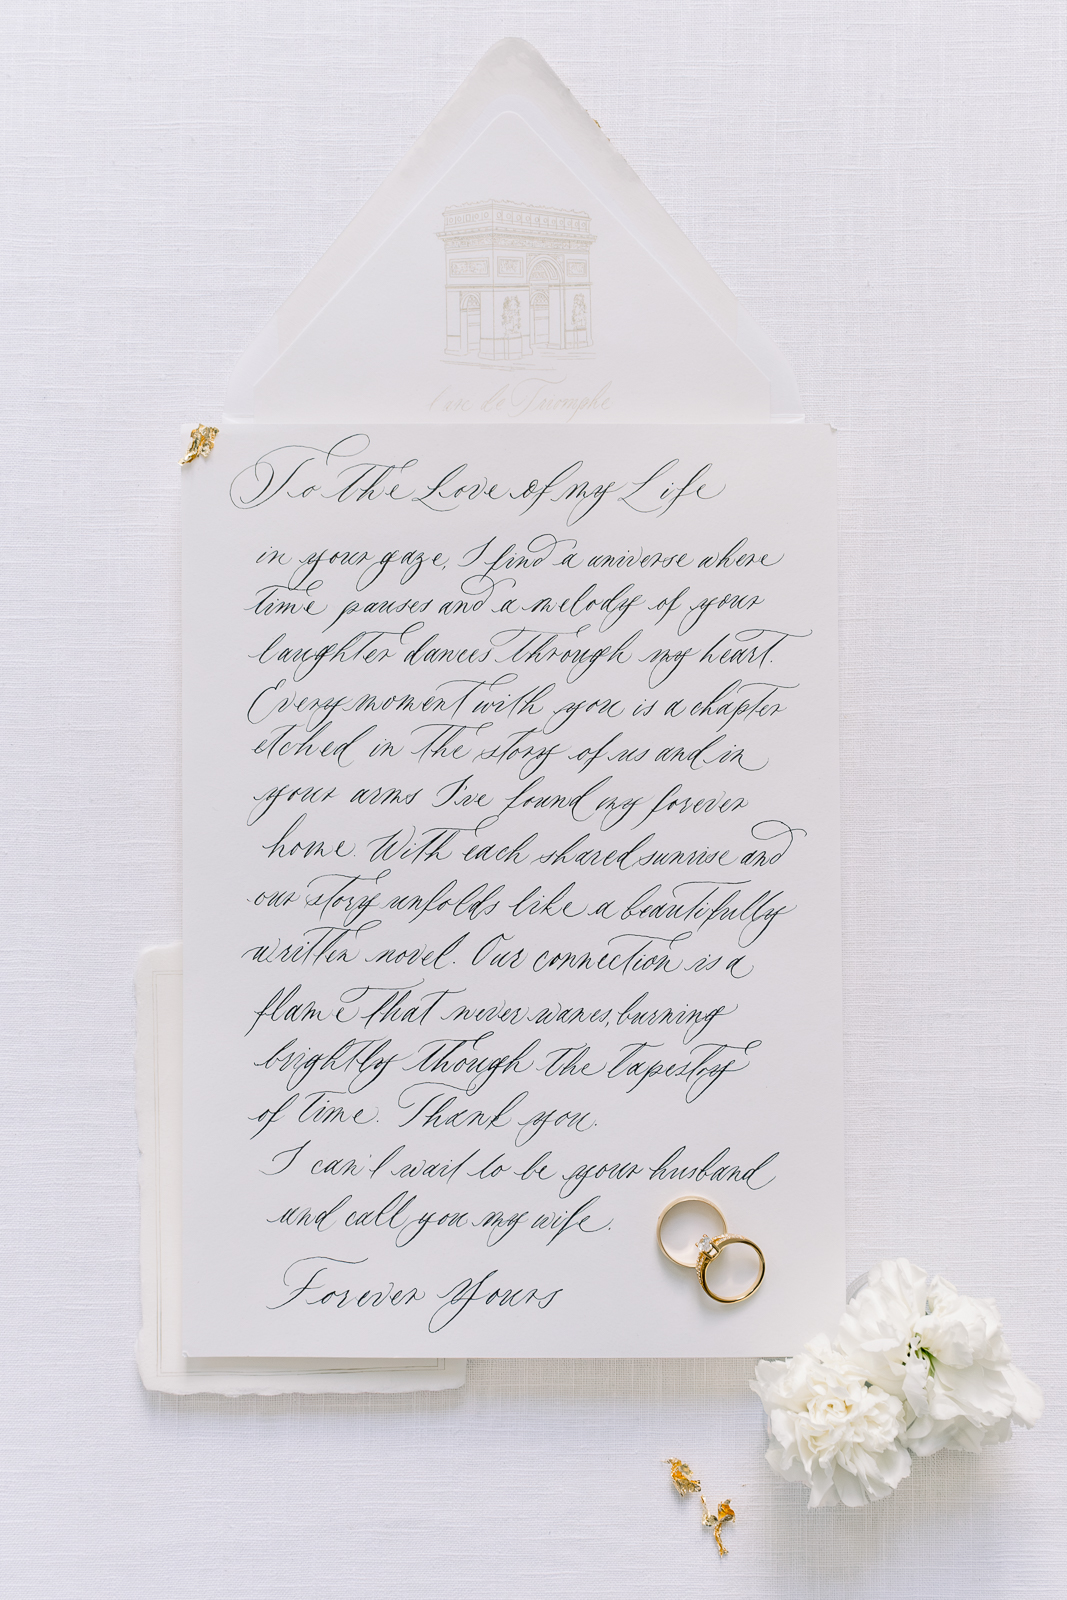 Arc de Triomphe
To the Love of my Life
in your gaze, I find a universe where
time pauses and a melody of your
laughter dances through my heart.
Every moment with you is a chapter
etched in the story of us and in
your arms I've found my forever
home. With each shared sunrise and
our story unfolds like a beautifully
written novel. Our connection is a
flame that never wanes, burning
brightly though the tapestry
of time. Thank you.
I can't wait to be your husband
and call you my wife.
Forever Yours